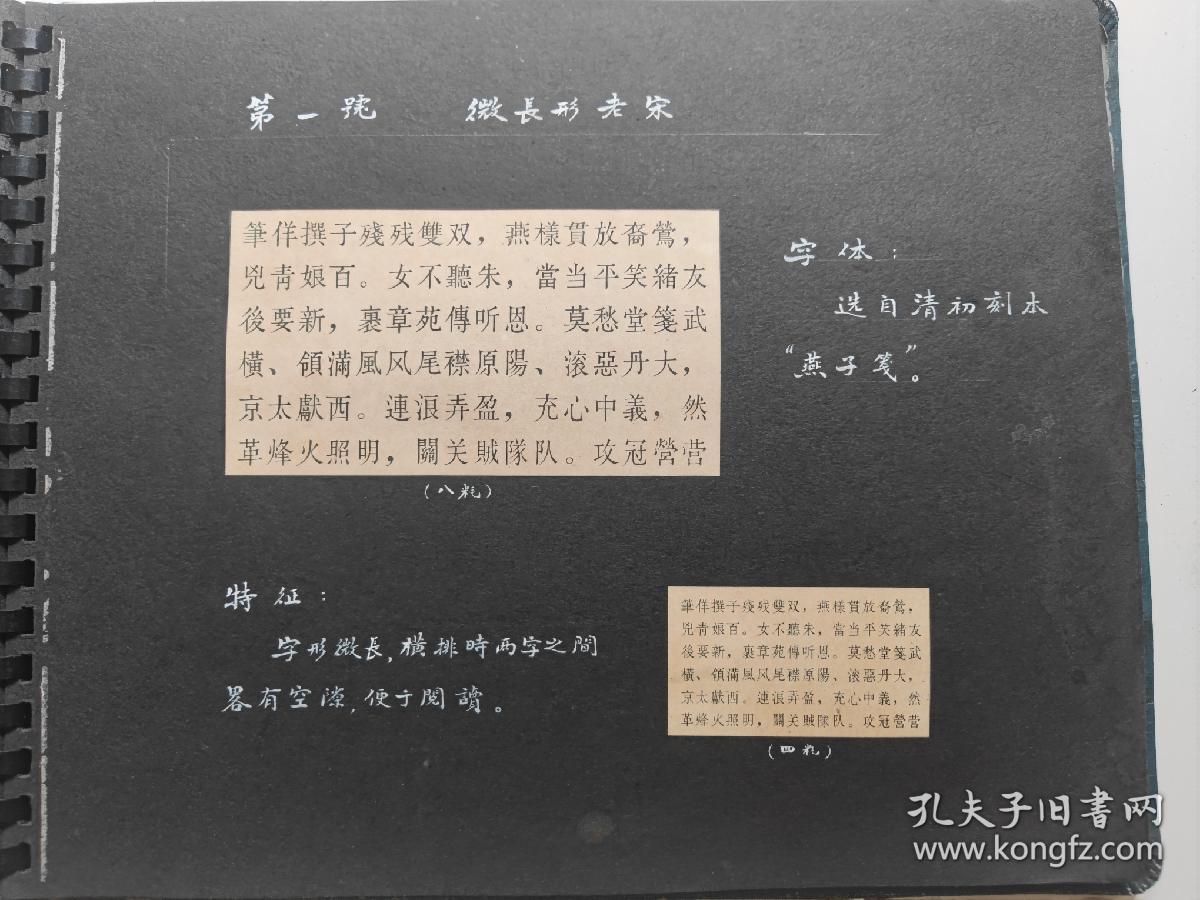 第一號 微長形老宋
筆佯撰子殘残雙双，燕樣貫放裔鶯，
兕靑娘百。女不聽朱，當当平笑緒友
後要新，裹章苑傳听恩。莫愁堂箋武
橫、領滿風风尾襟原陽、滚惡丹大，
京太獻西。連浪弄盈，充心中義，然
革烽火照明，關关賊隊队。攻冠營营
（八粍）
字体：
选自清初刻本
“燕子笺”。
特征：
字形微長，橫排時两字之間
畧有空隙，便于閱讀。
筆佯撰子殘残雙双，燕樣貫放裔鶯，
兕靑娘百。女不聽朱，當当平笑緒友
後要新，裹章苑傳听恩。莫愁堂箋武
橫、領滿風风尾襟原陽、滚惡丹大，
京太獻西。連浪弄盈，充心中義，然
革烽火照明，關关賊隊队。攻冠營营
（四粍）
孔夫子旧书网
www.kongfz.com